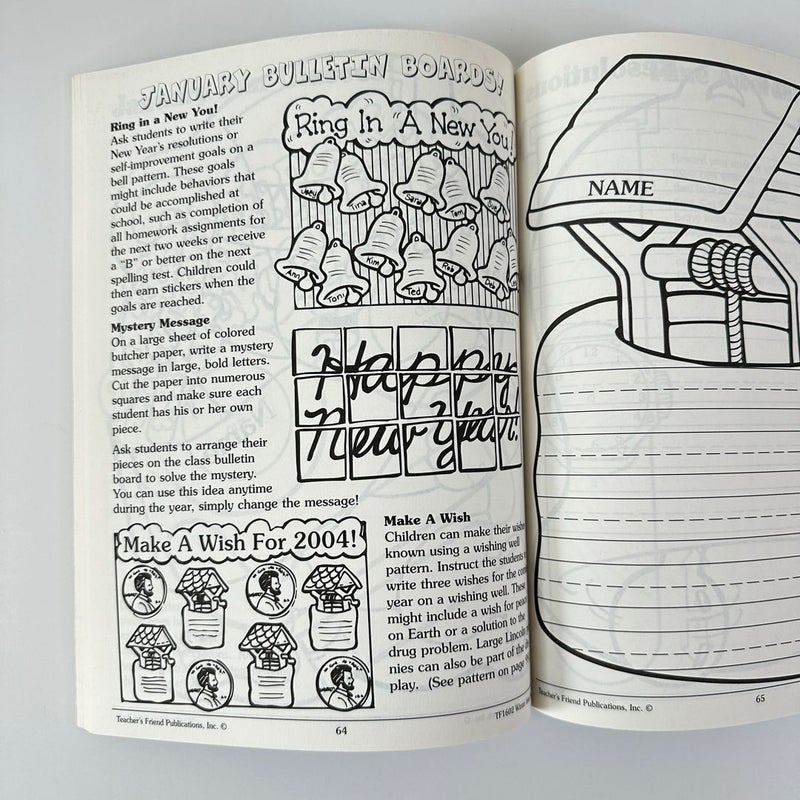 JANUARY BULLETIN BOARDS!
Ring in a New You!
Ask students to write their
New Year's resolutions or
self-improvement goals on a
bell pattern. These goals
might include behaviors that
could be accomplished at
school, such as completion of
all homework assignments for
the next two weeks or receive
a "B" or better on the next
spelling test. Children could
then earn stickers when the
goals are reached.
Ring In A New You!
Tina
Sara
Tom
Ann
Toni
Kim
Ted
Rob
Deb
Mystery Message
On a large sheet of colored
butcher paper, write a mystery
message in large, bold letters.
Cut the paper into numerous
squares and make sure each
student has his or her own
piece.
Ask students to arrange their
pieces on the class bulletin
board to solve the mystery.
You can use this idea anytime
during the year, simply change the message!
Happy
New Year!
Make A Wish For 2004!
Make A Wish
Children can make their wishes
known using a wishing well
pattern. Instruct the students to
write three wishes for the
year on a wishing well. These
might include a wish for peace
on Earth or a solution to the
drug problem. Large Lincoln
nies can also be part of the
play. (See pattern on page
Teacher's Friend Publications, Inc. ©
64
TF1602 Winter
NAME
Teacher's Friend Publications, Inc. ©
65